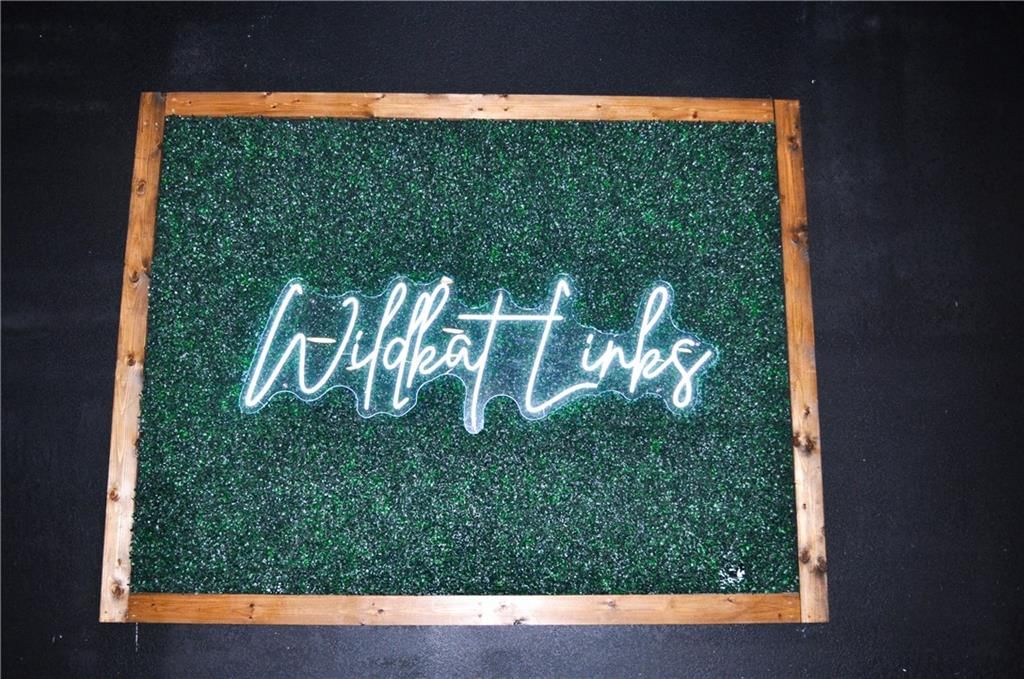 Wildkāt Links